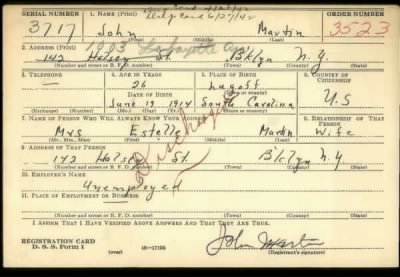 SERIAL NUMBER 1. NAME (Print) ORDER NUMBER
3717 John Martin 3523
(First) (Middle) (Last)
2. ADDRESS (Print)
1903 Lafayette Ave
142 Halsey St. B'klyn N.Y.
(Number and street or R. F. D. number) (Town) (County) (State)
3. TELEPHONE 4. AGE IN YEARS 5. PLACE OF BIRTH 6. COUNTRY OF CITIZENSHIP
— 26 Lugoff
DATE OF BIRTH (Town or county)
June 19 1914 South Carolina U.S
(Exchange) (Number) (Mo.) (Day) (Yr.) (State or country)
7. NAME OF PERSON WHO WILL ALWAYS KNOW YOUR ADDRESS 8. RELATIONSHIP OF THAT PERSON
Mrs Estelle Martin Wife
(Mr., Mrs., Miss) (First) (Middle) (Last)
9. ADDRESS OF THAT PERSON
142 Halsey St. B'klyn N.Y
(Number and street or R. F. D. number) (Town) (County) (State)
Discharged
10. EMPLOYER'S NAME
Unemployed
11. PLACE OF EMPLOYMENT OR BUSINESS
(Number and street or R. F. D. number) (Town) (County) (State)
I AFFIRM THAT I HAVE VERIFIED ABOVE ANSWERS AND THAT THEY ARE TRUE.
REGISTRATION CARD
D. S. S. Form 1 (over) 16—17105 John Martin
(Registrant's signature)